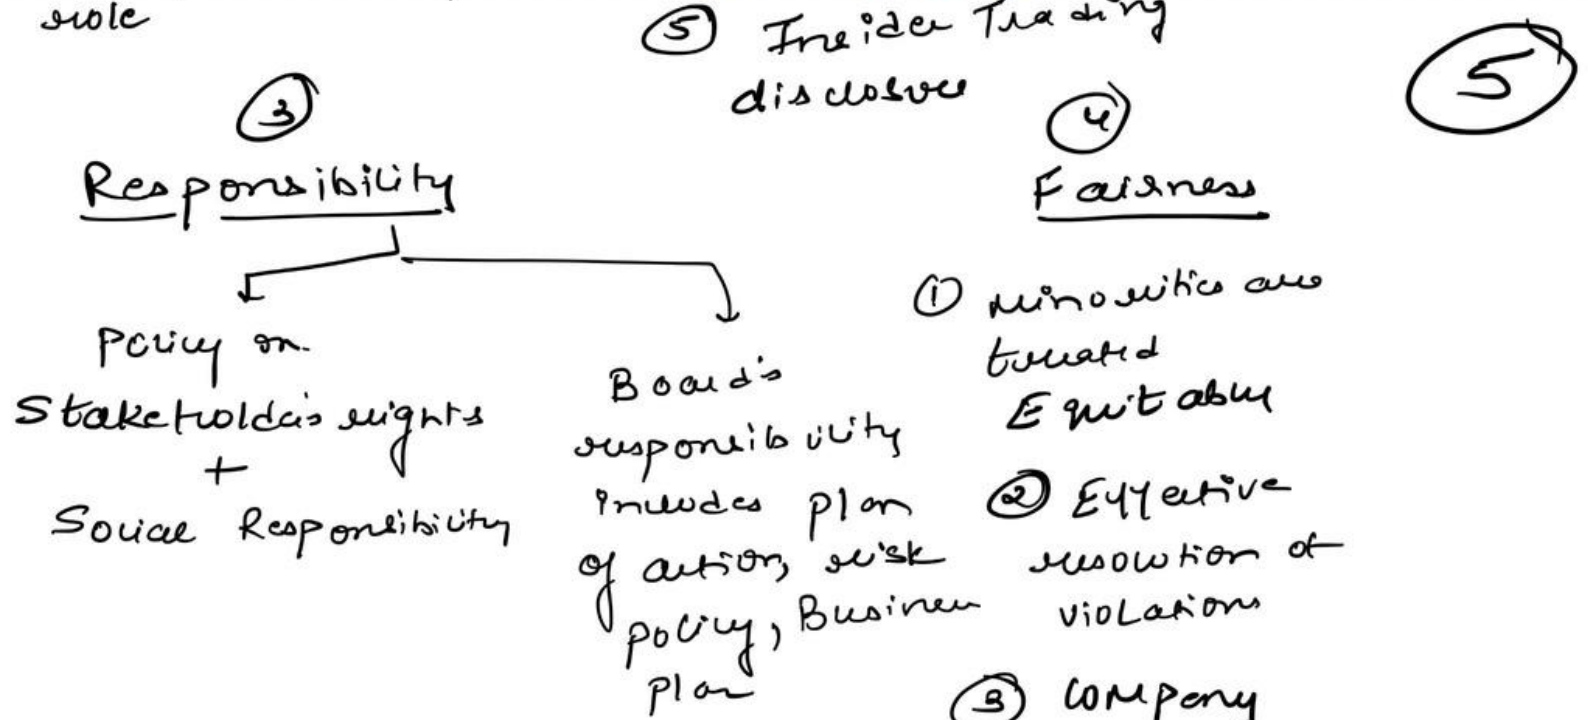 role
⑤ Insider Trading
disclosure
⑤
③
Responsibility
Policy on
Stakeholder's rights
+
Social Responsibility
Board's
responsibility
includes plan
of action, risk
policy, Business
plan
④
Fairness
① minorities are
treated
Equitably
② Effective
resolution of
violations
③ company